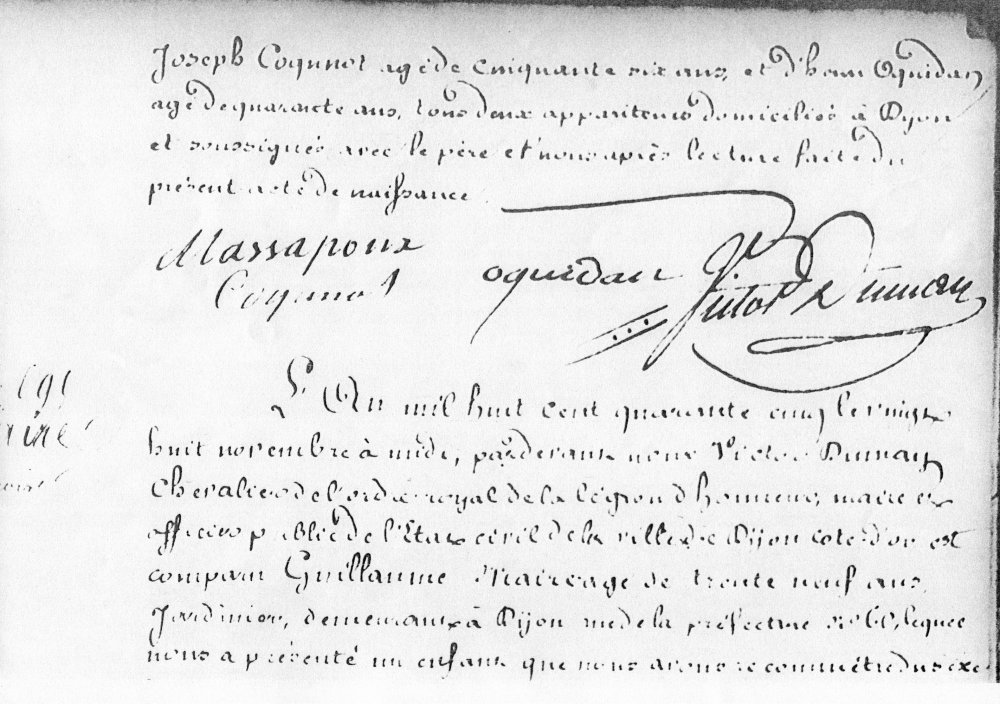 Joseph Coqunot agé de Cinquante six ans, et d'henri Oquidan
agé de quarante ans, tous deux appariteurs domiciliés à Dijon
et soussignés avec le père et nous après lecture faite du
présent acte de naissance
Massapoux
Coqunot
oquidan
Victor Dumay
L'An mil huit cent quarante cinq le vingt
huit novembre à midi, par devant nous Victor Dumay
Chevalier de l'ordre royal de la légion d'honneur, maire et
officier public de l'Etat civil de la ville de Dijon cote-d'or est
comparu Guillaume de trente neuf ans,
Jardinier, demeurant à Dijon rue de la préfecture No 60, lequel
nous a présenté un enfant que nous avons reconnu être du sexe